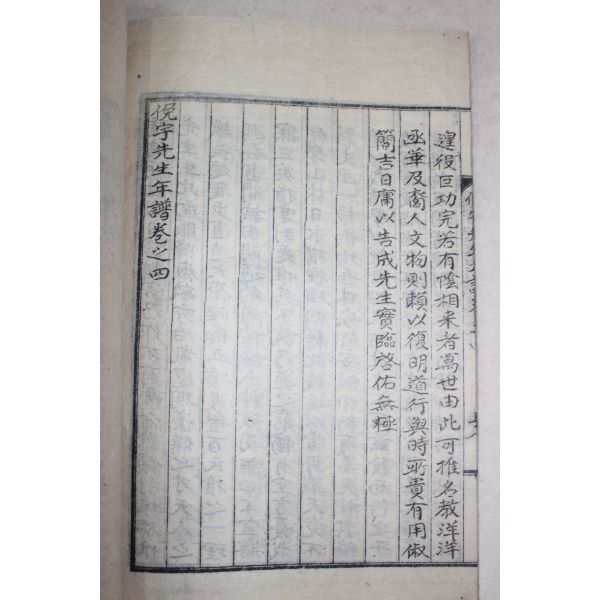 遑役巨功完若有陰相来者萬世由此可推名教洋洋
亟華及裔人文物則賴以復明道行與時所貴有用俶
簡吉日庸以告成先生實臨啓佑無極
俛宇先生年譜卷之四